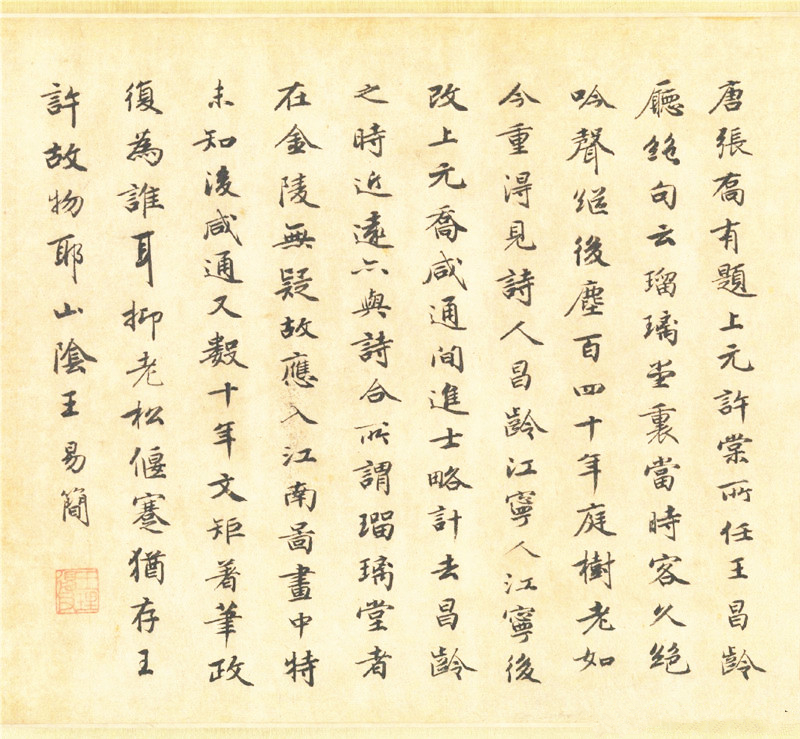 唐張喬有題上元許棠所任王昌齡
廳絕句云瑠璃堂裏當時客久絕
吟聲繼後塵百四十年庭樹老如
今重得見詩人昌齡江寧人江寧後
改上元喬咸通間進士略計去昌齡
之時近遠亦與詩合所謂瑠璃堂者
在金陵無疑故應入江南啚畫中特
未知後咸通又數十年文矩著筆政
復為誰耳抑老松偃蹇猶存王
許故物耶山陰王易簡